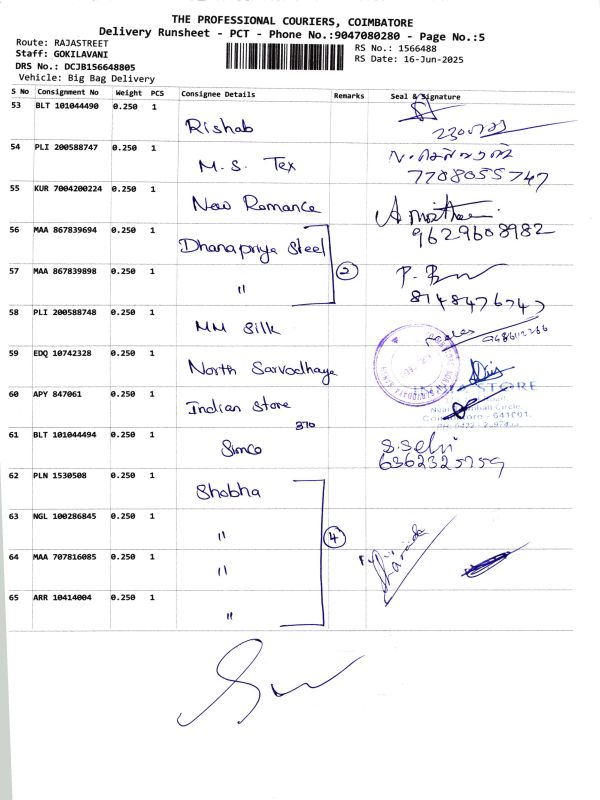 THE PROFESSIONAL COURIERS, COIMBATORE
Delivery Runsheet - PCT - Phone No.:9047080280 - Page No.:5
Route: RAJASTREET
Staff: GOKILAVANI
RS No.: 1566488
DRS No.: DCJB156648805
RS Date: 16-Jun-2025
Vehicle: Big Bag Delivery
S No Consignment No Weight PCS Consignee Details Remarks Seal & Signature
53 BLT 101044490 0.250 1 Rishab
54 PLI 200588747 0.250 1 M.S. Tex 7708055747
55 KUR 7004200224 0.250 1 New Romance 9629608982
56 MAA 867839694 0.250 1 Dhanapriya Steel
2
57 MAA 867839898 0.250 1 " 8148476747
58 PLI 200588748 0.250 1 MM Silk
59 EDQ 10742328 0.250 1 North Sarvodhaya
60 APY 847061 0.250 1 Indian Store STORE
370
61 BLT 101044494 0.250 1 Simco 6362325759
62 PLN 1530508 0.250 1 Shobha
63 NGL 100286845 0.250 1 "
4
64 MAA 707816085 0.250 1 "
65 ARR 10414004 0.250 1 "